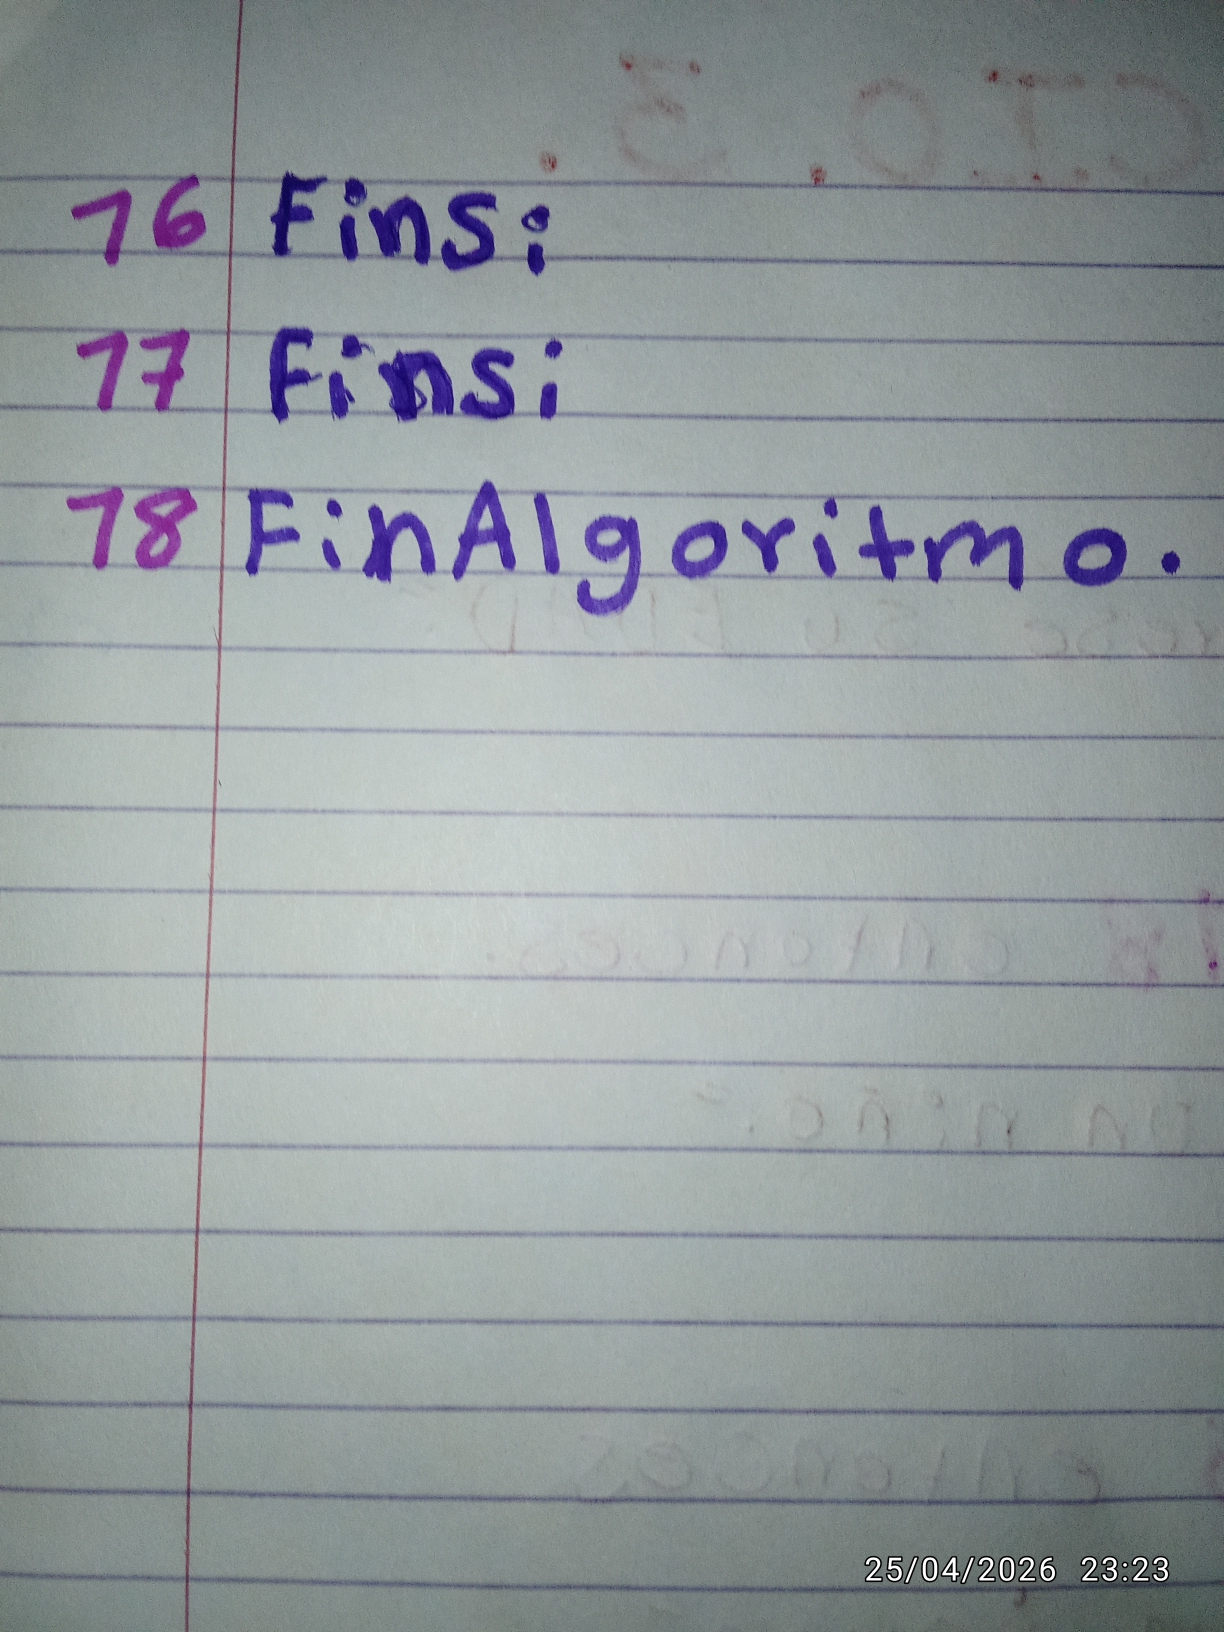 16 Finsi
17 Finsi
18 FinAlgoritmo.
25/04/2026 23:23